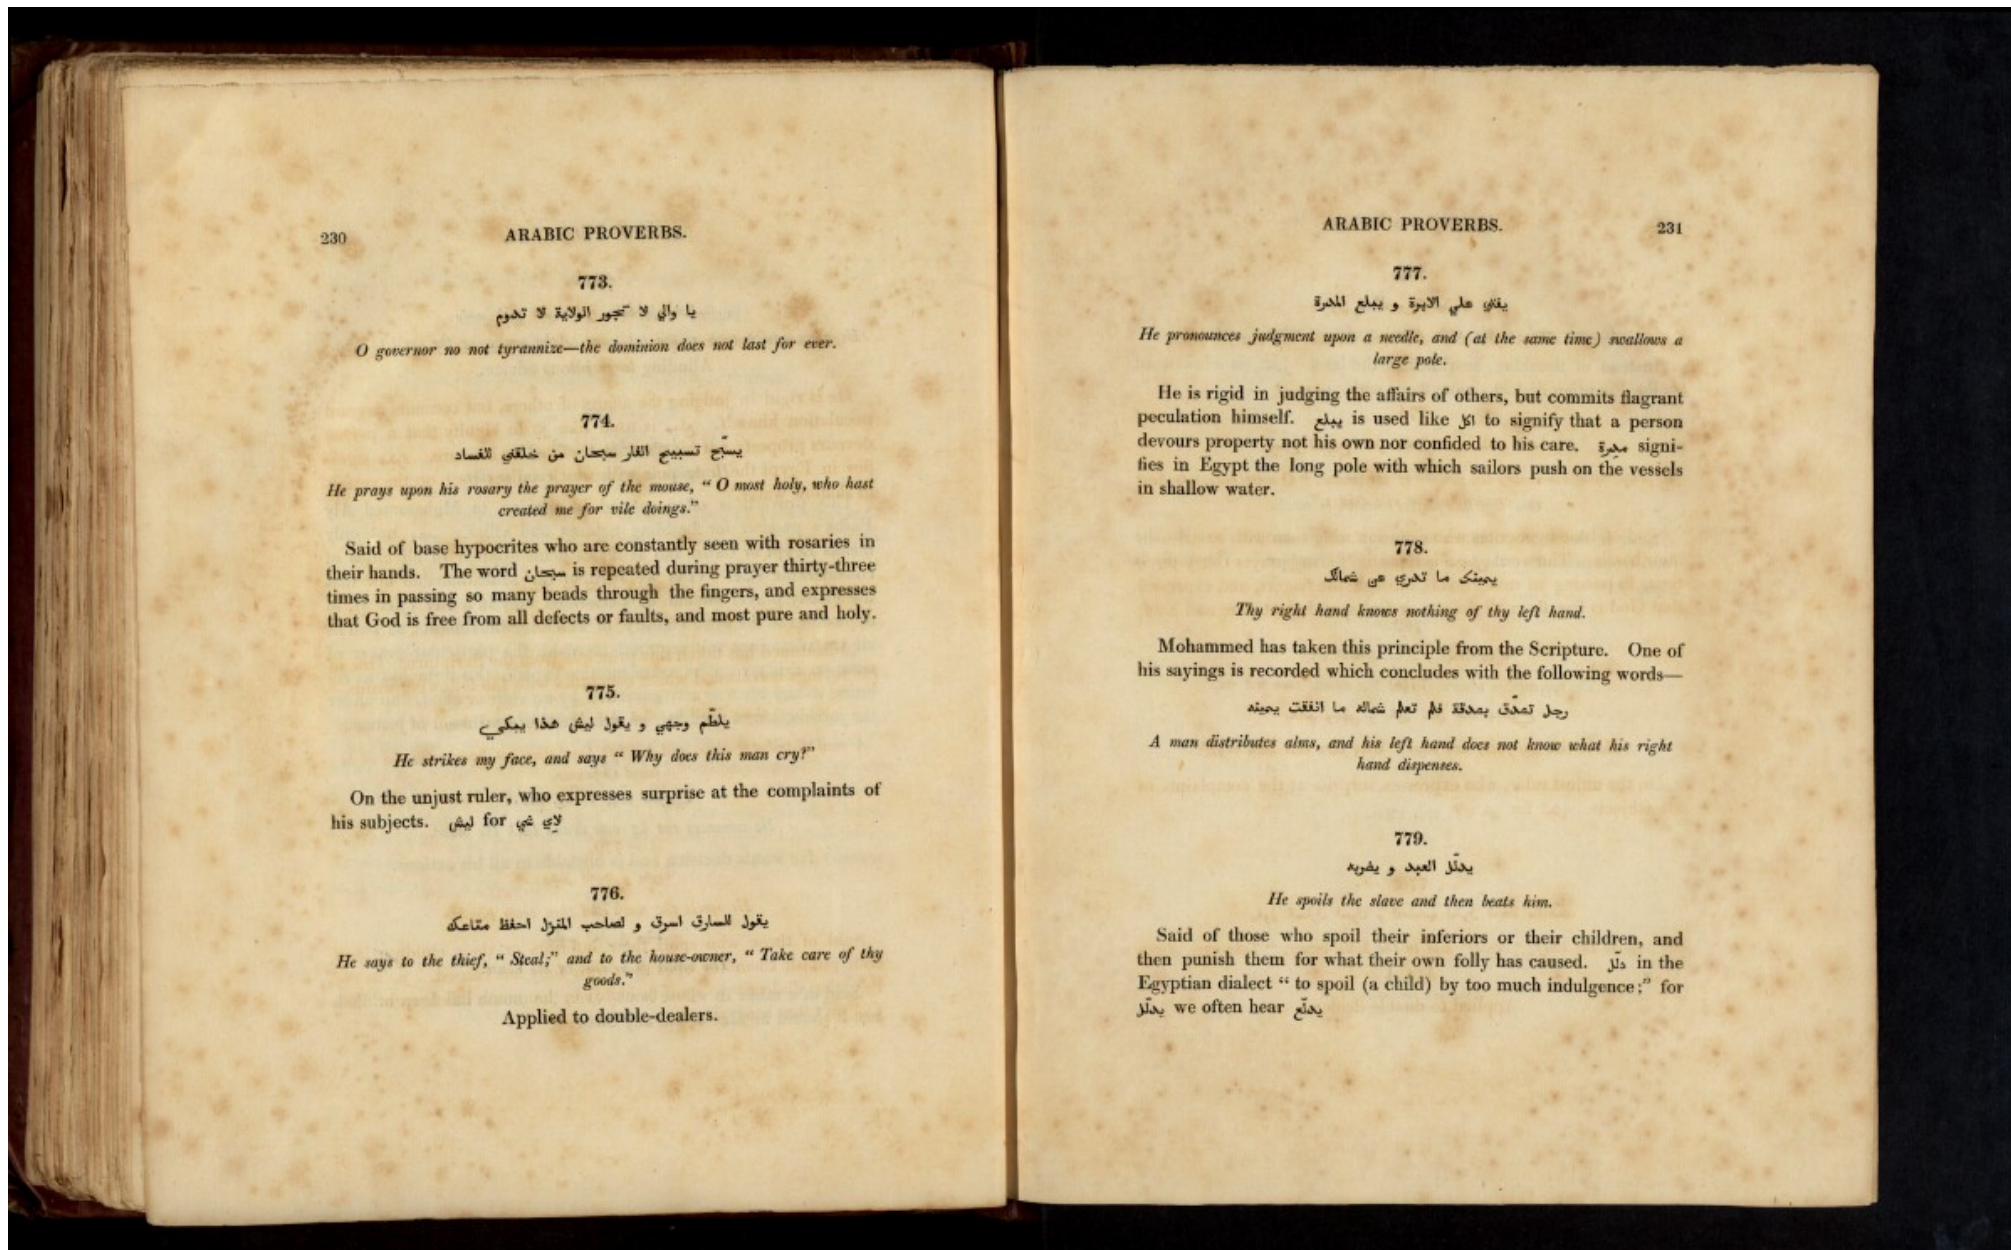 230
ARABIC PROVERBS.
773.
يا والي لا تجور الولاية لا تدوم
O governor no not tyrannize—the dominion does not last for ever.
774.
يسبّح تسبيح الفار سبحان من خلقني للفساد
He prays upon his rosary the prayer of the mouse, “ O most holy, who hast
created me for vile doings.”
Said of base hypocrites who are constantly seen with rosaries in
their hands. The word سبحان is repeated during prayer thirty-three
times in passing so many beads through the fingers, and expresses
that God is free from all defects or faults, and most pure and holy.
775.
يلطّم وجهي و يقول ليش هذا يبكي
He strikes my face, and says “ Why does this man cry?”
On the unjust ruler, who expresses surprise at the complaints of
his subjects. ليش for لاِي شي
776.
يقول للسارق اسرق و لصاحب المنزل احفظ متاعك
He says to the thief, “ Steal;” and to the house-owner, “ Take care of thy
goods.”
Applied to double-dealers.
ARABIC PROVERBS.
231
777.
يفتي علي الابرة و يبلع المدرة
He pronounces judgment upon a needle, and (at the same time) swallows a
large pole.
He is rigid in judging the affairs of others, but commits flagrant
peculation himself. يبلع is used like اكل to signify that a person
devours property not his own nor confided to his care. مدِرة signi-
fies in Egypt the long pole with which sailors push on the vessels
in shallow water.
778.
يمينك ما تدري عن شمالك
Thy right hand knows nothing of thy left hand.
Mohammed has taken this principle from the Scripture. One of
his sayings is recorded which concludes with the following words—
رجل تصدّق بصدقة فلم تعلم شماله ما انفقت يمينه
A man distributes alms, and his left hand does not know what his right
hand dispenses.
779.
يدلّل العبد و يضربه
He spoils the slave and then beats him.
Said of those who spoil their inferiors or their children, and
then punish them for what their own folly has caused. دلّل in the
Egyptian dialect “ to spoil (a child) by too much indulgence;” for
يدلّل we often hear يدلّع